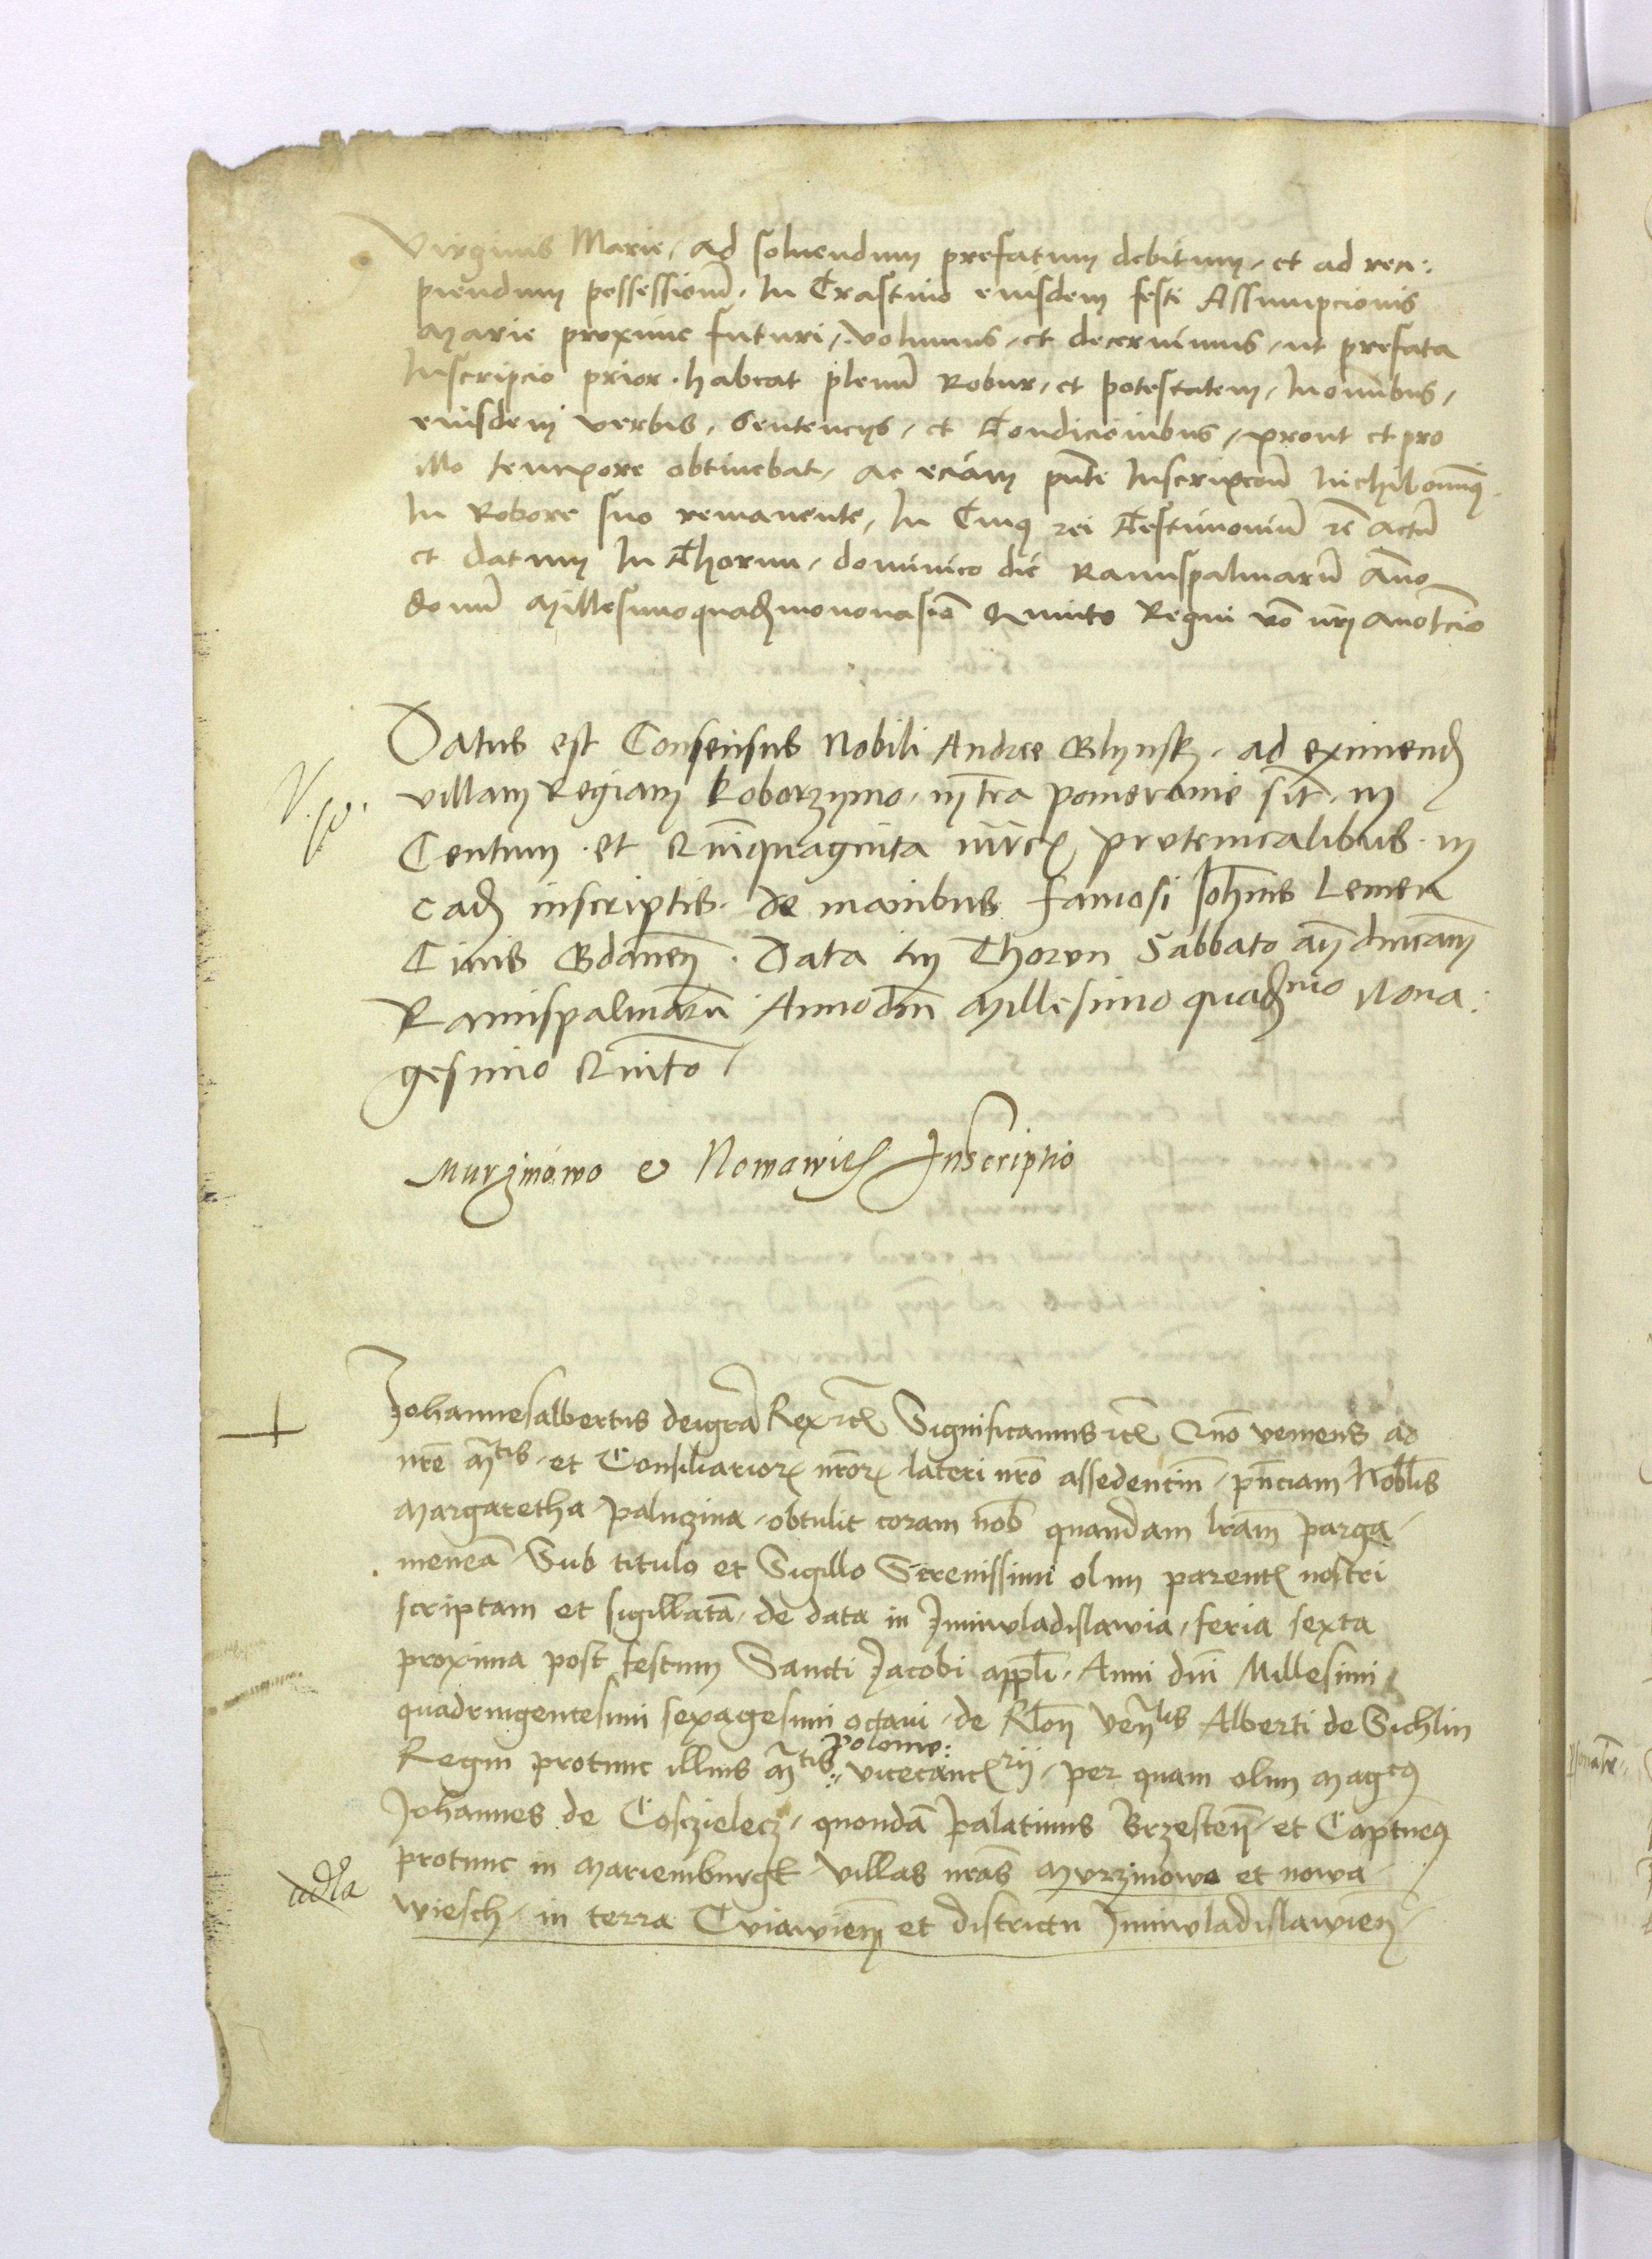 Virginis Marie, ad soluendum prefatum debitum, et ad reci:
piendum possessionē. In Crastino eiusdem festi Assumpcionis
Marie proxime futuri, volumus, et decernimus, ut prefata
Inscripcio prior. habeat plenū Robur, et potestatem, In omībus,
eiusdem verbis, Sentencys, et Condicionibus, prout et pro
illo tempore obtinebat, ac eciam pn̄te Inscripcōn̄ Nichilomīq
In Robore suo remanente, In Cuius rei Testimoniū r̄c actū
et datum In Thorun, dominico die Ramispalmarū Anno
domī Millesimoquadrīmononasiō Quinto Regni vō nr̄i Anotcio
Datus est Consensus Nobili Andree Glynsk. ad eximend
villam Regiam koborzyno. in t̄ra pomeranie sit̄. in
Centum. et Quīnquaginta mrcis pruteincalibus. in
ead inscriptis. de manibus famosi Joh̄nis Lemen
Civis Gdanen̄. Data in Thorvn Sabbato an̄ dnīcam
Ramispalmarū Anno dn̄i Millesimo quadmo Nona:
gesimo Quinto
Murzinowo et Nowawies Inscriptio
Johannesalbertus deigrā Rex etc Significamus etc Quō veniens ad
nrē Mtis. et Consiliarior nrōr lateri nrō assedentiū, pn̄ciam Nobl̄is
Margaretha Paluzina, obtulit coram nob̄ quandam lrām parga
meneā Sub titulo et Sigillo Serenissimi olim parentis nostri
scriptam et sigillatā, de data in Juniwladislawia, feria sexta
proxima post festum Sancti Jacobi appl̄i, Anni dn̄i Millesimi
quadringentesimi sexagesimi octaui, de Rlōn Ven̄lis Alberti de Sichlin
Polonie:
Regni protunc illius Mtis. vicecancrii, per quam olim Magcus
Johannes de Coszielecz, quondā Palatinus Brzesten̄, et Captneus
adla
protunc in Mariemburgk villas nrās Murzinowo et nowa
wiesch, in terra Cviawien̄ et districtu Juniwladislawien̄